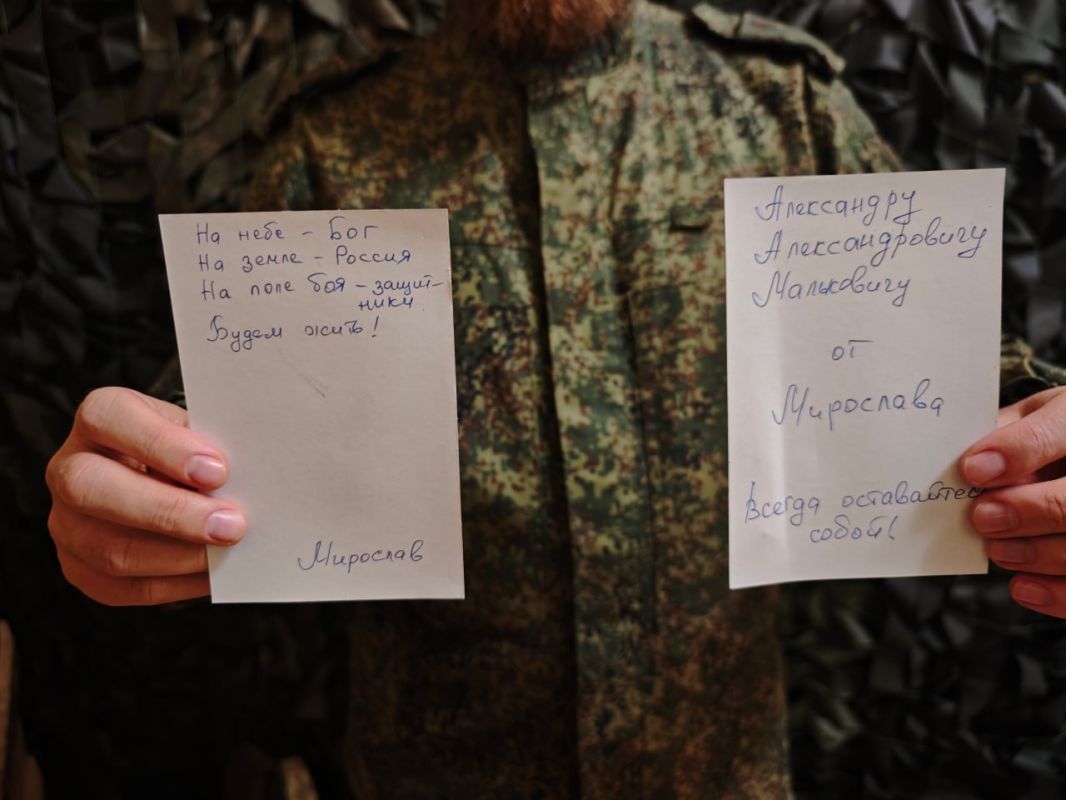 На небе – Бог
На земле – Россия
На поле боя – защит-
ники
Будем жить!
Мирослав
Александру
Александровичу
Мальковичу
от
Мирослава
Всегда оставайтесь
собой!